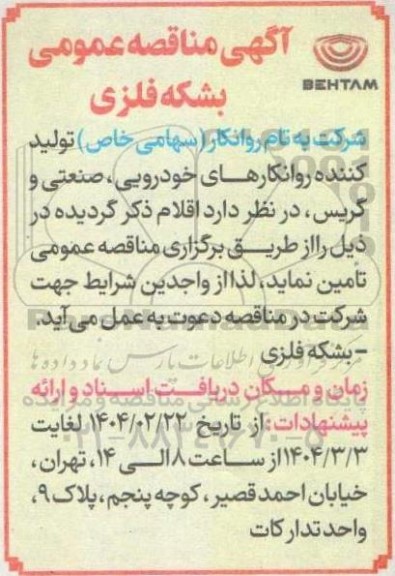 آگهی مناقصه عمومی
بشکه فلزی
BEHTAM
شرکت به تام روانکار (سهامی خاص) تولید
کننده روانکارهای خودرویی، صنعتی و
گریس، در نظر دارد اقلام ذکر گردیده در
ذیل را از طریق برگزاری مناقصه عمومی
تامین نماید، لذا از واجدین شرایط جهت
شرکت در مناقصه دعوت به عمل می آید.
- بشکه فلزی
زمان و مکان دریافت اسناد و ارائه
پیشنهادات: از تاریخ ۱۴۰۴/۰۲/۲۲ لغایت
۱۴۰۴/۳/۳ از ساعت ۸ الی ۱۴، تهران،
خیابان احمد قصیر، کوچه پنجم، پلاک ۹،
واحد تدارکات